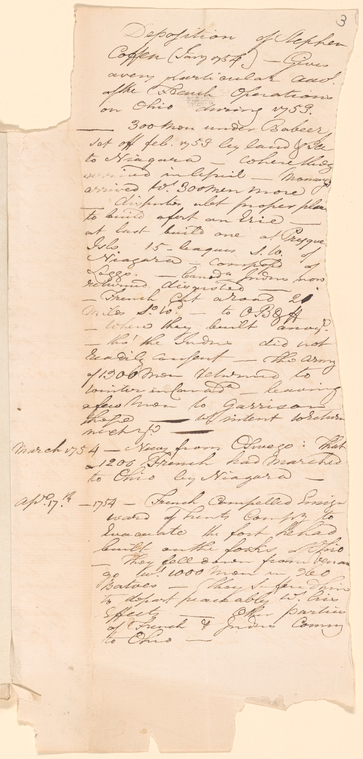 3
Deposition of Stephen
Coffen (Jany 1754) — Gives
a very particular acct
of the French Operations
on Ohio during 1753.
— 300 men under Babeer
set off feb. 1753 by land & Ice
to Niagara — where they
arrived in April —
arrived wt. 300 men more
— disputes abt proper place
to build a fort on Erie —
at last built one at Presque
Isle 15 leagues S. W. of
Niagara — composed of
Loggs. — Indns now
returned disgusted —
— French Cut a road 21
miles So. Wd. — to
— where they built anoyr.
— tho' the Indns did not
readily consent — The army
of 1300 men returned to
winter in Canada — leaving
a few men to Garrison
these — intent to return
next
March 1754 — News from Oswego: That
1200 French had marched
to Ohio by Niagara —
Apr. 17th — 1754 — French Compelled Ensign
ward of Compy to
evacuate the fort he had
built on the forks of Ohio
— They fell down from
go wt. 1000 men in 360
Batoes
to depart peaceably wt.
Effects — Other parties
of French & Indns Coming
to Ohio —